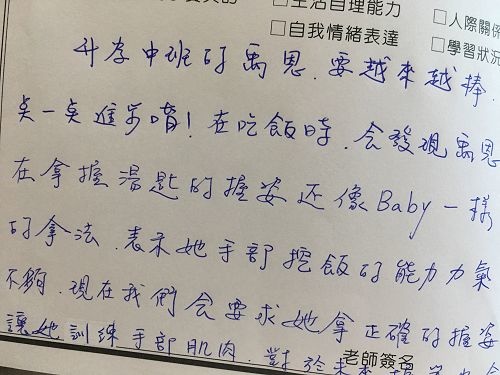 □生活自理能力 □人際關係
□自我情緒表達 □學習狀況
升格中班的禹恩.要越來越棒.
一點一點進步唷!在吃飯時.會發現禹恩
在拿握湯匙的握姿还像Baby一樣
的拿法.表示她手部挖飯的能力力氣
不夠.現在我們会要求她拿正確的握姿
讓她訓練手部肌肉.對於未來
老師簽名